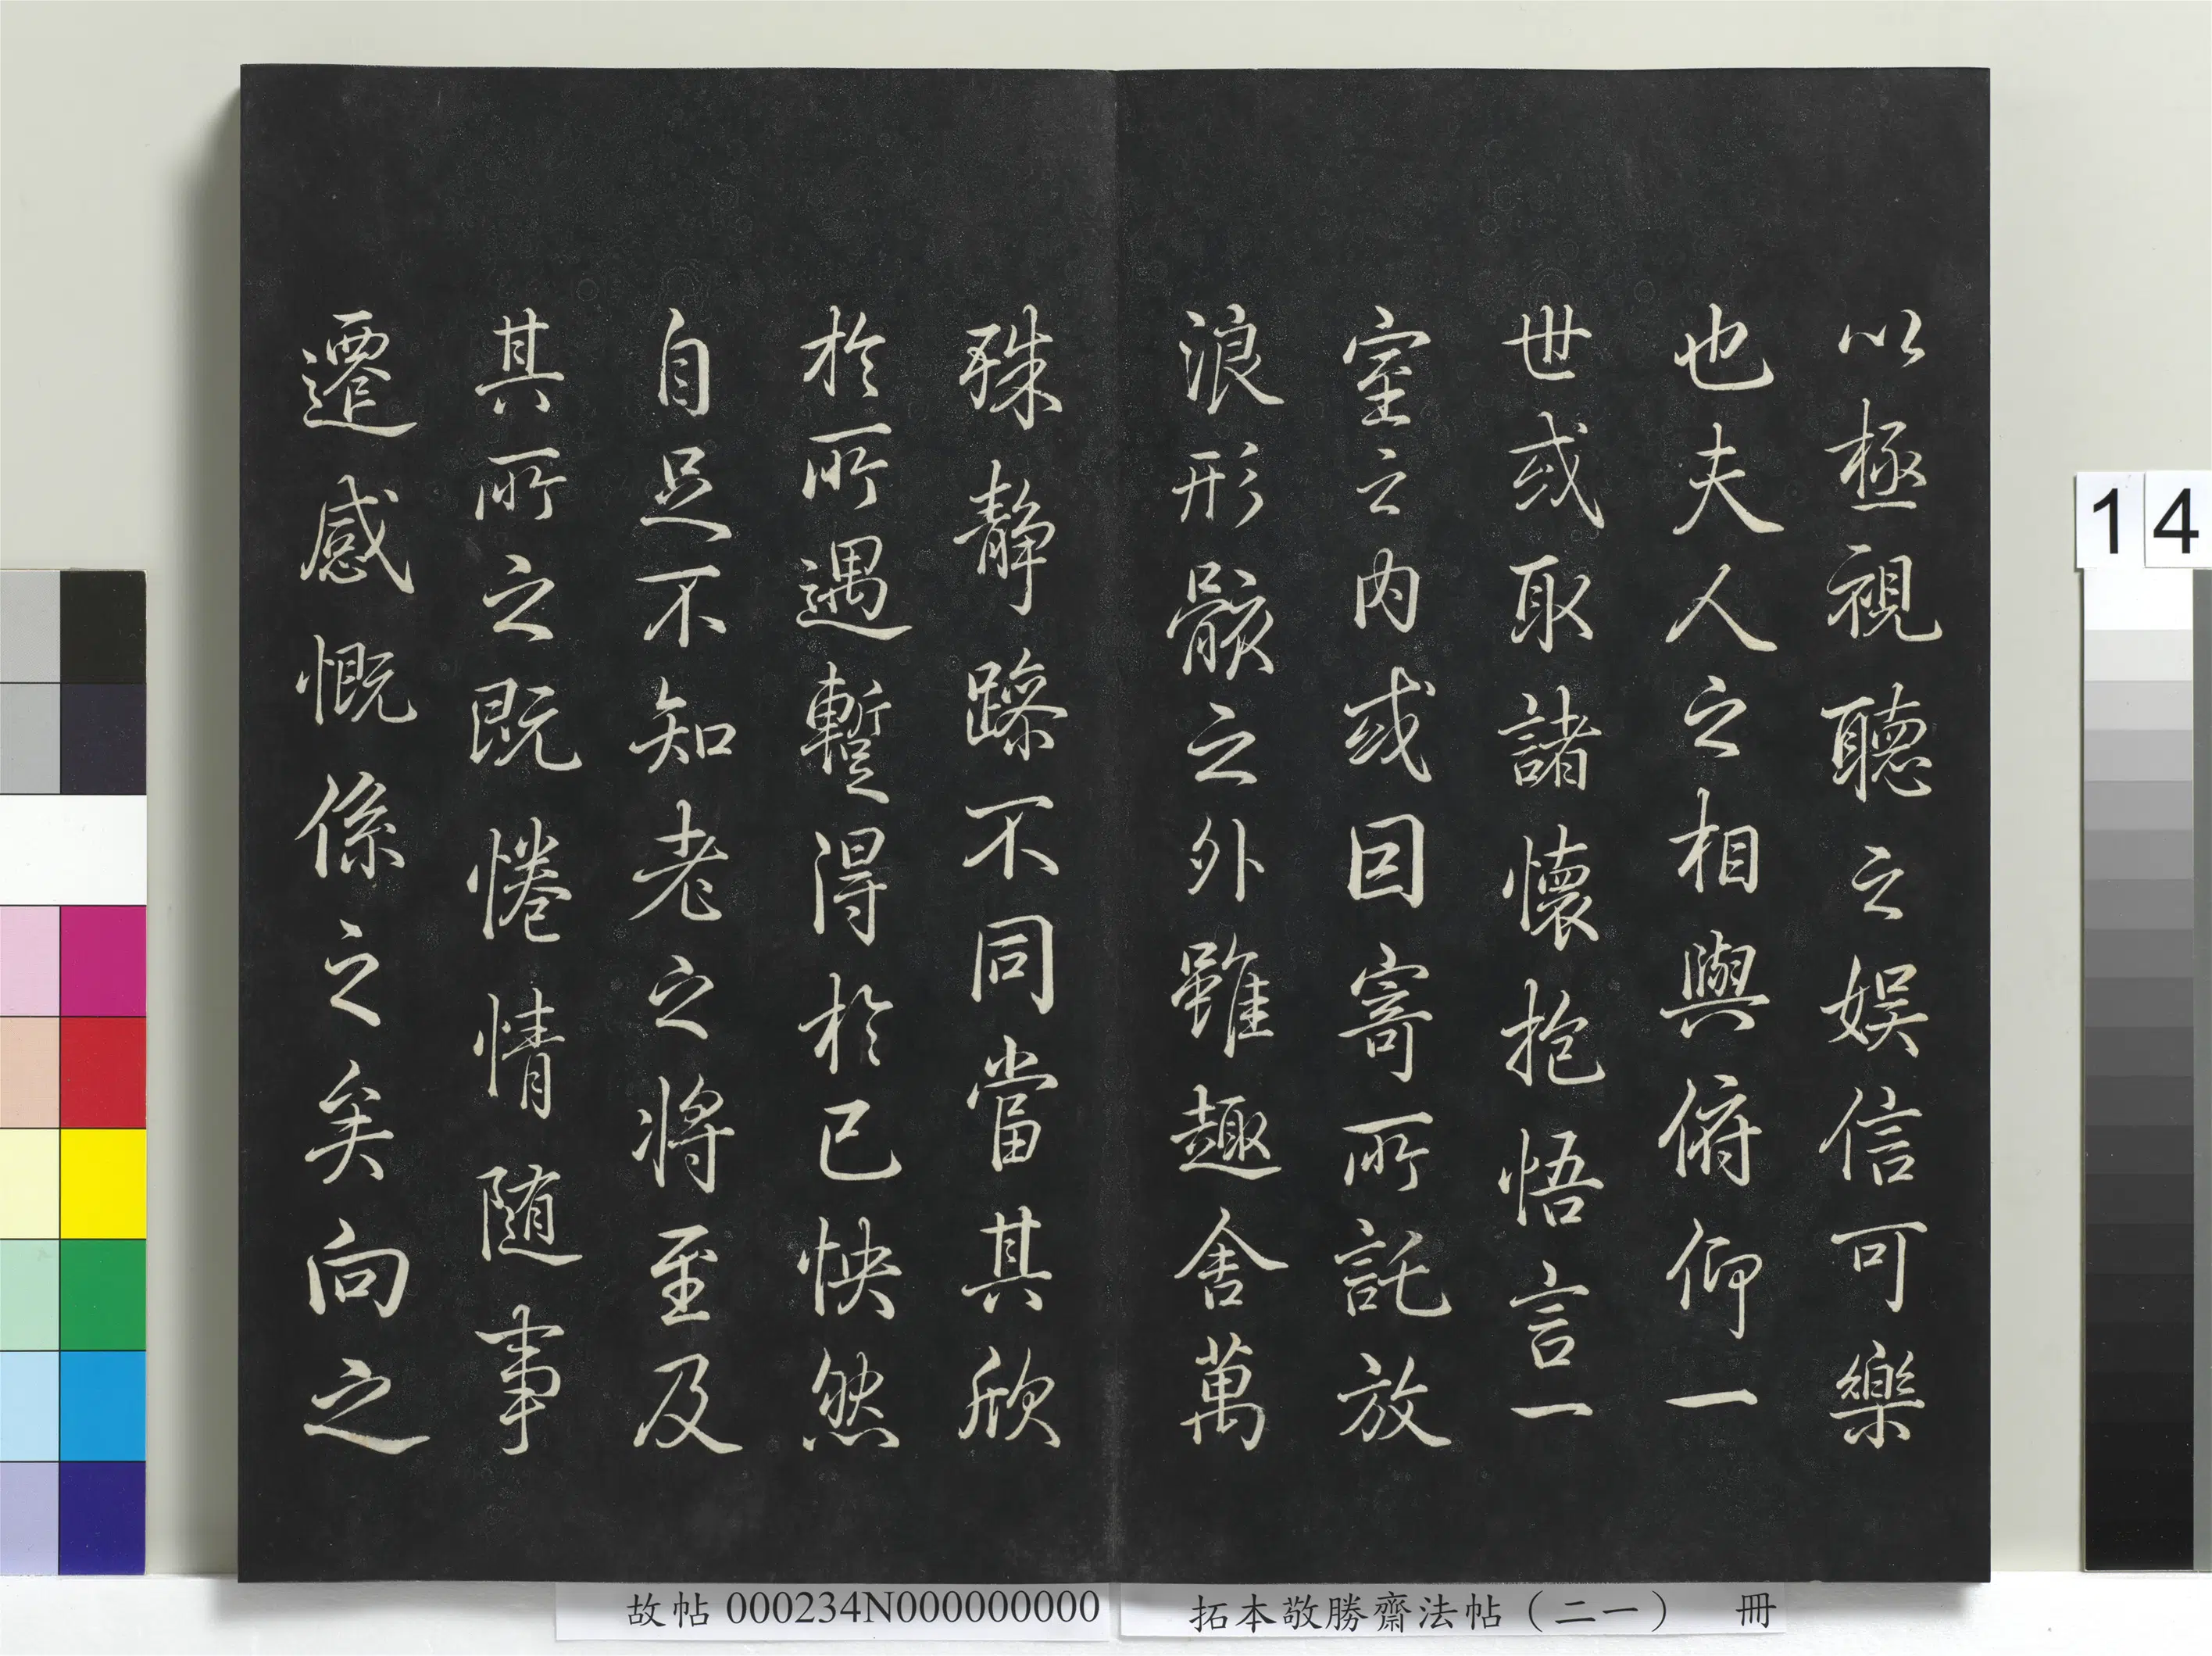 以極視聽之娱信可樂
也夫人之相與俯仰一
世或取諸懷抱悟言一
室之内或因寄所託放
浪形骸之外雖趣舍萬
殊静躁不同當其欣
於所遇蹔得於己怏然
自足不知老之将至及
其所之既惓情随事
遷感慨係之矣向之
14
故帖 000234N000000000
拓本敬勝齋法帖（二一） 冊